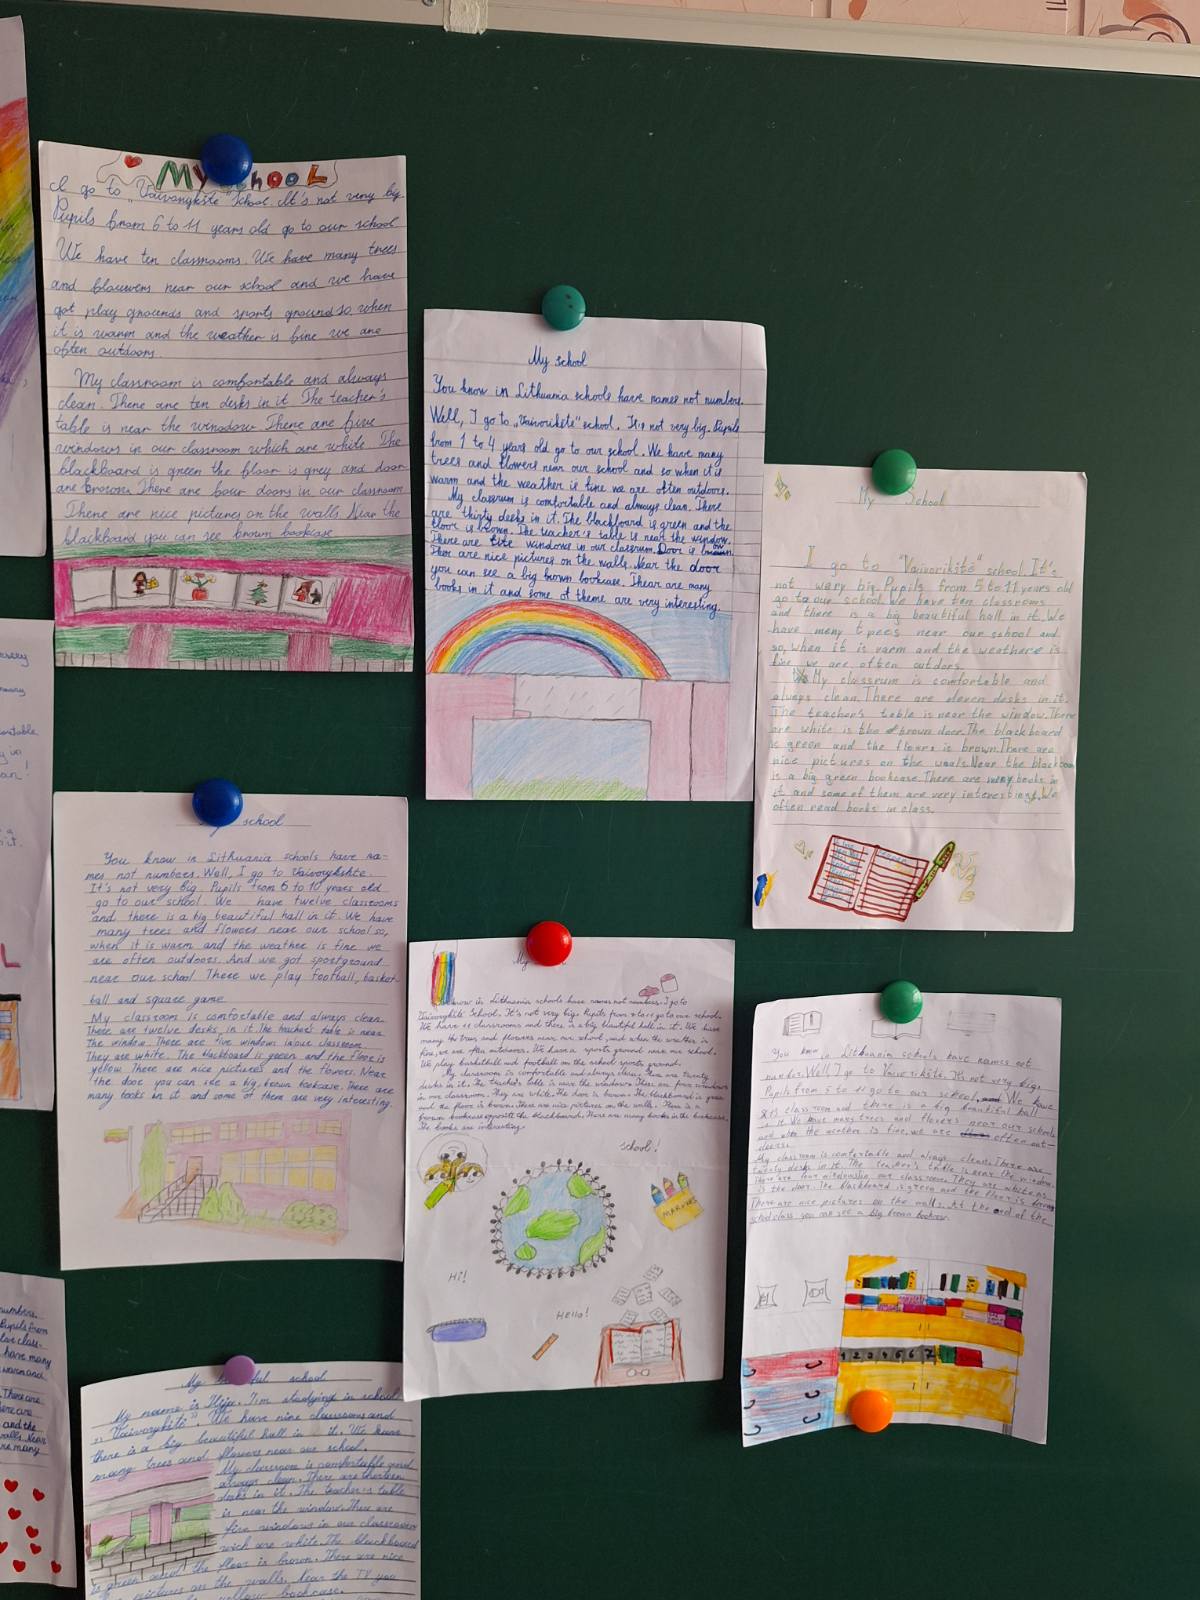 My School
I go to "Vaivorykštė" School. It's not very big.
Pupils from 6 to 11 years old go to our school
We have ten classrooms. We have many trees
and flouwers near our school and we have
got play grounds and sports ground so, when
it is warm and the weather is fine we are
often outdoors.
My classroom is comfortable and always
clean. There are ten desks in it. The teacher's
table is near the window There are five
windows in our classroom which are white The
blackboard is green the floor is grey and door
are brown. There are four doors in our classroom
There are nice pictures on the walls. Near the
blackboard you can see brown bookcase
My school
You know in Lithuania schools have names not numbers.
Well, I go to "Vaivorikšte" school. It is not very big. Pupils
from 1 to 4 years old go to our school. We have many
trees and flowers near our school and so when it is
warm and the weather is fine we are often outdoors.
My classrum is comfortable and always clean. There
are thirty desks in it. The blackboard is green and the
floor is brown. The teacher's table is near the window.
There are windows in our classrum. Door is
Ther are nice pictures on the walls. Near the door
you can see a big brown bookcase. Thear are many
books in it and some of theme are very interesting.
My School
I go to "Vaivorikštė" school. It's
not wery big. Pupils from 5 to 11 years old
go to our school. We have ten classrooms
and there is a big beautiful hall in it. We
have meny trees near our school and
so, when it is varm and the weathere is
fine we are often outdors.
My classrum is comfortable and
always clean. There are eleven desks in it.
The teacher's table is near the window. There
are white is the brown door. The blackboard
is green and the flours is brown. There are
nice pictures on the waals. Near the blackboom
is a big green bookcase. There are meny books in
it and some of them are very interesting. We
often read books in class.
school
You know in Lithuania schools have na-
mes not numbers. Well, I go to Vaivorykshte.
It's not very big. Pupils from 6 to 10 years old
go to our school. We have twelve classrooms
and there is a big beautiful hall in it. We have
many trees and flowers near our school so,
when it is warm and the weather is fine we
are often outdoors. And we got sportground
near our school There we play football, basket
ball and square game
My classroom is comfortable and always clean.
There are twelve desks, in it. The teacher's table is near
the window. There are five windows in our classroom.
They are white. The blackboard is green and the floor is
yellow. There are nice pictures and the flowers. Near
the door you can see a big, brown bookcase. There are
many books in it and some of them are very interesting.
know in Lithuania schools have names not numbers. I go to
Vaivorykštė School. It's not very big. Pupils from go to our school.
We have 11 classrooms and there is a big beautiful hall in it. We have
many trees and flowers near our school, and when the weather is
fine, we are often outdoors. We have a sports ground near our school.
We play basketball and football on the school sports ground.
My classroom is comfortable and always clean. There are twenty
desks in it. The teacher's table is near the window. There are four windows
in our classroom. They are white. The door is brown. The blackboard is green
and the floor is brown. There are nice pictures on the walls. There is a
brown bookcase opposite the blackboard. There are many books in the bookcase.
The books are interesting.
School!
MARKERS
Hi!
Hello!
You know in Lithuania schools have names not
number. Well I go to Vaivorikšte. It's not very big.
Pupils from 5 to 11 go to our school. We have
class room and there is a big beautiful hall
in it. We have many trees and flovers near our school
and the weather is fine, we are often out-
doors.
My classroom is comfortable and always clean. There are
twenty desks in it. The teacher's table is near the window.
There are four our class room. They are white
is the door. The blackboard is green and the floor is brown
There are nice pictures on the walls. At the end of the
school class you can see a big brown bookcase
1 2 3 4 5 6 7
My school
My name is I'm studying in school
"Vaivorykštė". We have nine classrooms and
there is a big beautiful hall in it. We have
many trees and flowers near our school.
My classroom is comfortable and
always clean. There are thirteen
desks in it. The teacher's table
is near the window. There are
five windows in our classroom
wich are white. The blackboard
is green and the floor is brown. There are nice
pictures on the walls. Near the TV you
yellow bookcase.